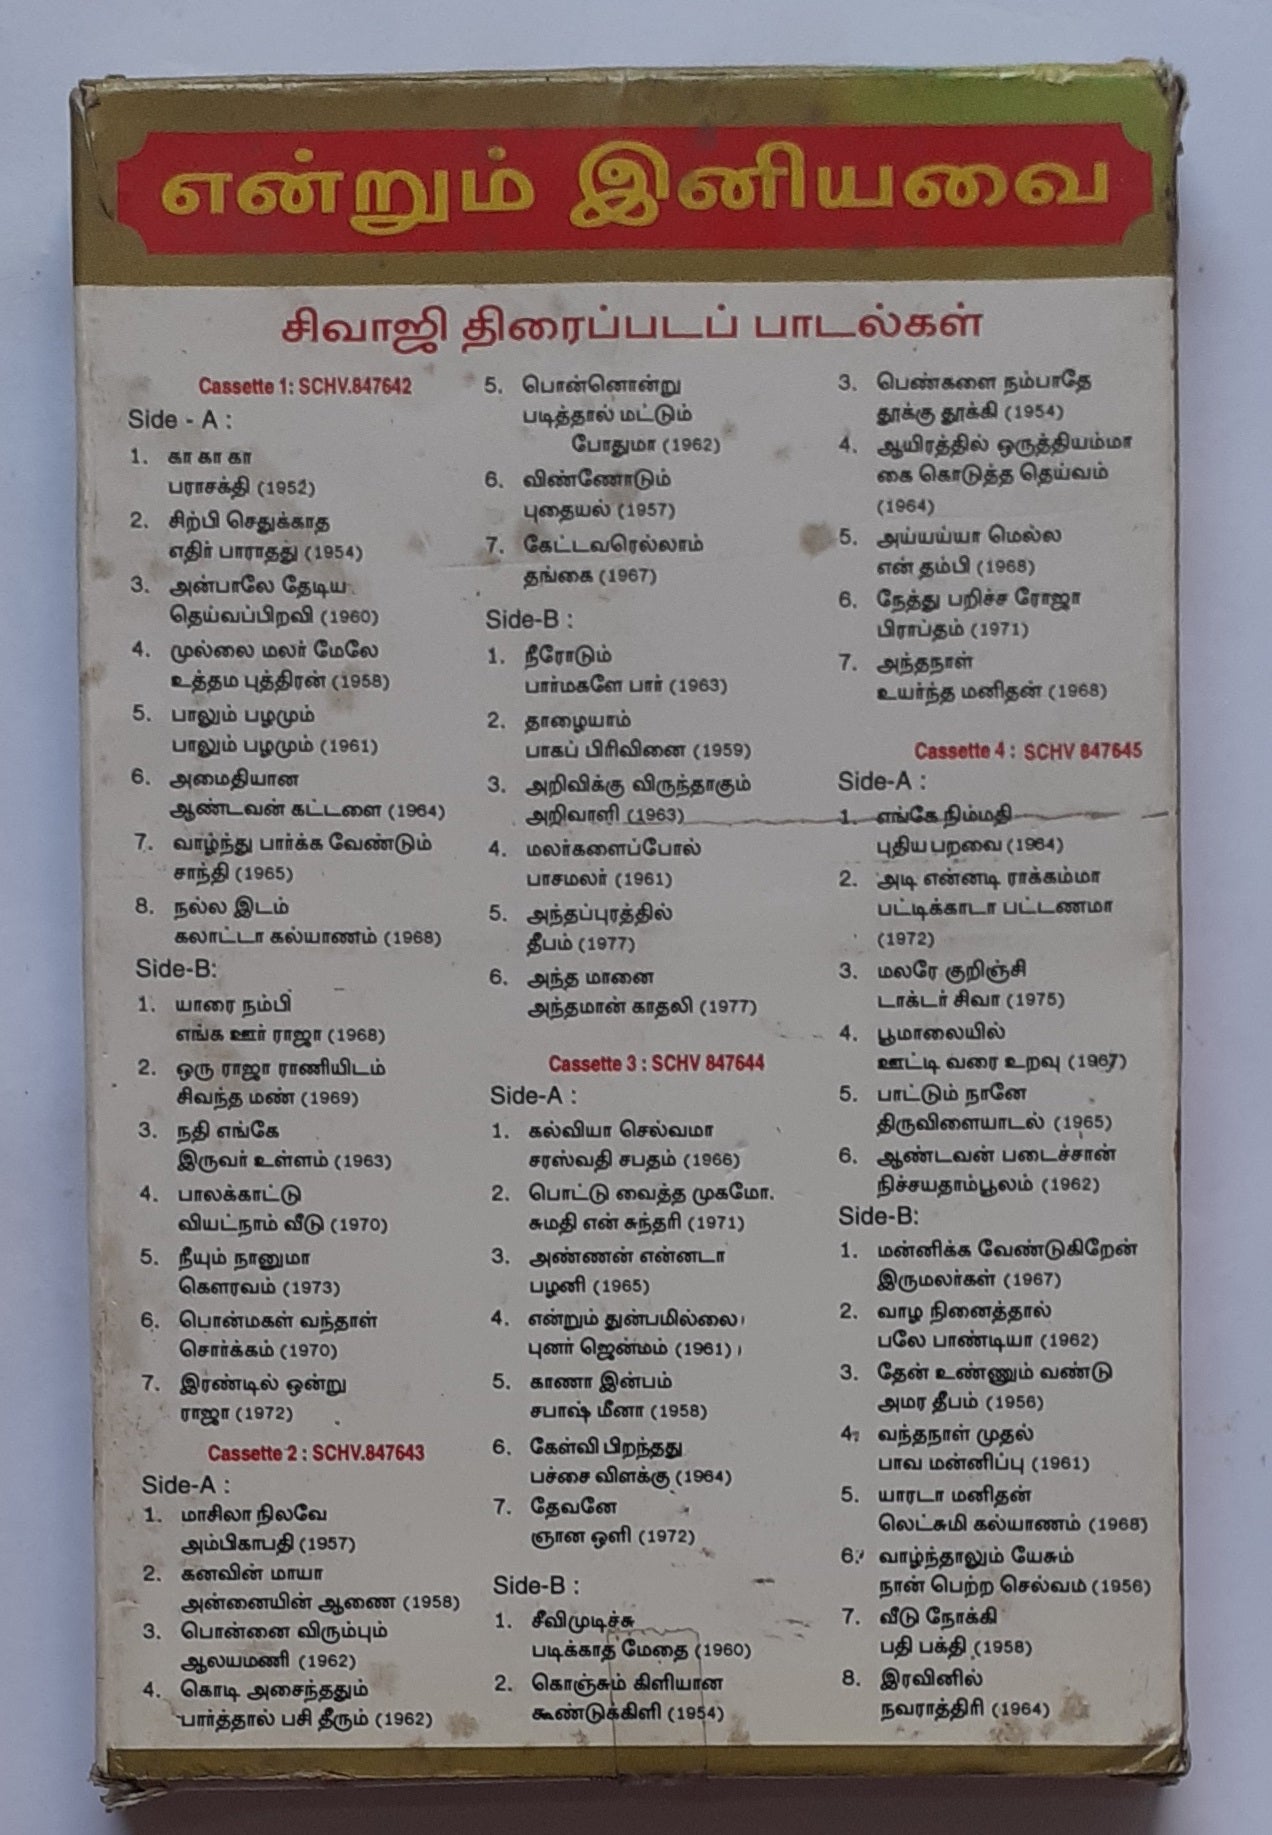 என்றும் இனியவை
சிவாஜி திரைப்படப் பாடல்கள்
Cassette 1: SCHV.847642
Side - A :
1. கா கா கா
பராசக்தி (1952)
2. சிற்பி செதுக்காத
எதிர் பாராதது (1954)
3. அன்பாலே தேடிய
தெய்வப்பிறவி (1960)
4. முல்லை மலர் மேலே
உத்தம புத்திரன் (1958)
5. பாலும் பழமும்
பாலும் பழமும் (1961)
6. அமைதியான
ஆண்டவன் கட்டளை (1964)
7. வாழ்ந்து பார்க்க வேண்டும்
சாந்தி (1965)
8. நல்ல இடம்
கலாட்டா கல்யாணம் (1968)
Side-B:
1. யாரை நம்பி
எங்க ஊர் ராஜா (1968)
2. ஒரு ராஜா ராணியிடம்
சிவந்த மண் (1969)
3. நதி எங்கே
இருவர் உள்ளம் (1963)
4. பாலக்காட்டு
வியட்நாம் வீடு (1970)
5. நீயும் நானுமா
கௌரவம் (1973)
6. பொன்மகள் வந்தாள்
சொர்க்கம் (1970)
7. இரண்டில் ஒன்று
ராஜா (1972)
Cassette 2 : SCHV.847643
Side-A :
1. மாசிலா நிலவே
அம்பிகாபதி (1957)
2. கனவின் மாயா
அன்னையின் ஆணை (1958)
3. பொன்னை விரும்பும்
ஆலயமணி (1962)
4. கொடி அசைந்ததும்
பார்த்தால் பசி தீரும் (1962)
5. பொன்னொன்று
படித்தால் மட்டும்
போதுமா (1962)
6. விண்ணோடும்
புதையல் (1957)
7. கேட்டவரெல்லாம்
தங்கை (1967)
Side-B :
1. நீரோடும்
பார்மகளே பார் (1963)
2. தாழையாம்
பாகப் பிரிவினை (1959)
3. அறிவிக்கு விருந்தாகும்
அறிவாளி (1963)
4. மலர்களைப்போல்
பாசமலர் (1961)
5. அந்தப்புரத்தில்
தீபம் (1977)
6. அந்த மானை
அந்தமான் காதலி (1977)
Cassette 3 : SCHV 847644
Side-A :
1. கல்வியா செல்வமா
சரஸ்வதி சபதம் (1966)
2. பொட்டு வைத்த முகமோ.
சுமதி என் சுந்தரி (1971)
3. அண்ணன் என்னடா
பழனி (1965)
4. என்றும் துன்பமில்லை
புனர் ஜென்மம் (1961)
5. காணா இன்பம்
சபாஷ் மீனா (1958)
6. கேள்வி பிறந்தது
பச்சை விளக்கு (1964)
7. தேவனே
ஞான ஒளி (1972)
Side-B :
1. சீவிமுடிச்சு
படிக்காத மேதை (1960)
2. கொஞ்சும் கிளியான
கூண்டுக்கிளி (1954)
3. பெண்களை நம்பாதே
தூக்கு தூக்கி (1954)
4. ஆயிரத்தில் ஒருத்தியம்மா
கை கொடுத்த தெய்வம்
(1964)
5. அய்யய்யா மெல்ல
என் தம்பி (1968)
6. நேத்து பறிச்ச ரோஜா
பிராப்தம் (1971)
7. அந்தநாள்
உயர்ந்த மனிதன் (1968)
Cassette 4 : SCHV 847645
Side-A :
1. எங்கே நிம்மதி
புதிய பறவை (1964)
2. அடி என்னடி ராக்கம்மா
பட்டிக்காடா பட்டணமா
(1972)
3. மலரே குறிஞ்சி
டாக்டர் சிவா (1975)
4. பூமாலையில்
ஊட்டி வரை உறவு (1967)
5. பாட்டும் நானே
திருவிளையாடல் (1965)
6. ஆண்டவன் படைச்சான்
நிச்சயதாம்பூலம் (1962)
Side-B:
1. மன்னிக்க வேண்டுகிறேன்
இருமலர்கள் (1967)
2. வாழ நினைத்தால்
பலே பாண்டியா (1962)
3. தேன் உண்ணும் வண்டு
அமர தீபம் (1956)
4. வந்தநாள் முதல்
பாவ மன்னிப்பு (1961)
5. யாரடா மனிதன்
லெட்சுமி கல்யாணம் (1968)
6. வாழ்ந்தாலும் யேசும்
நான் பெற்ற செல்வம் (1956)
7. வீடு நோக்கி
பதி பக்தி (1958)
8. இரவினில்
நவராத்திரி (1964)